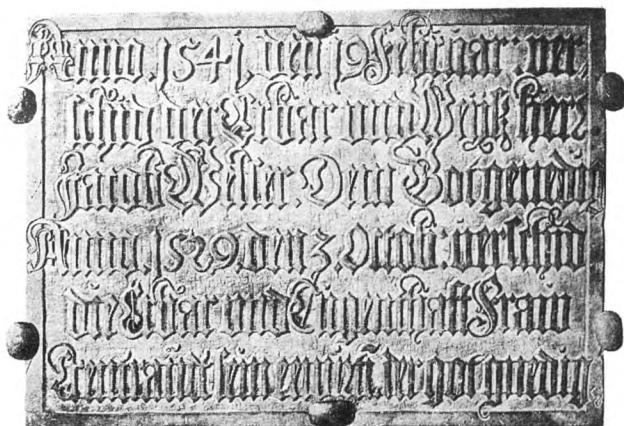 Anno. 1541, den 19 Februar ver,
schid der Erbar und Weyß Herr
Jacob Welser. Dem Got genedig
Anno. 1529 den 3. Octob: verschid
die Erbar und Tugenthafft Fraw
sein der got genedig